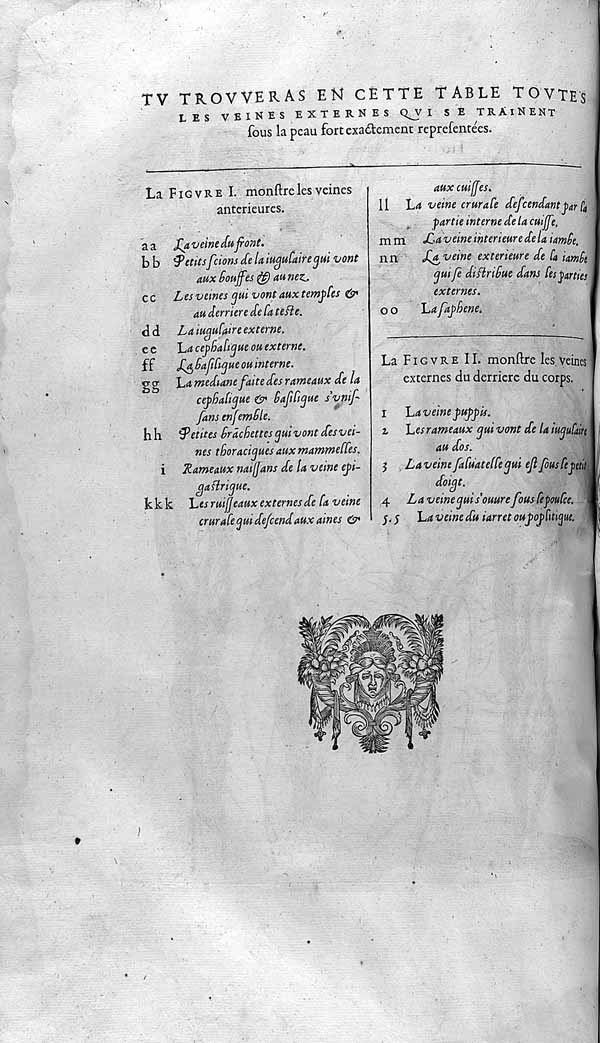 TV TROVVERAS EN CETTE TABLE TOVTES
LES VEINES EXTERNES QVI SE TRAINENT
ſous la peau fort exactement repreſentées.
La FIGVRE I. monſtre les veines
anterieures.
aa La veine du front.
bb Petits ſcions de la iugulaire qui vont
aux bouffes & au nez.
cc Les veines qui vont aux temples &
au derriere de la teſte.
dd La iugulaire externe.
ee La cephalique ou externe.
ff La baſilique ou interne.
gg La mediane faite des rameaux de la
cephalique & baſilique s'vniſ-
ſans enſemble.
hh Petites brãchettes qui vont des vei-
nes thoraciques aux mammelles.
i Rameaux naiſſans de la veine epi-
gaſtrique.
kkk Les ruiſſeaux externes de la veine
crurale qui deſcend aux aines &
aux cuiſſes.
ll La veine crurale deſcendant par la
partie interne de la cuiſſe.
mm La veine interieure de la iambe.
nn La veine exterieure de la iambe
qui ſe diſtribue dans les parties
externes.
oo La ſaphene.
La FIGVRE II. monſtre les veines
externes du derriere du corps.
1 La veine puppis.
2 Les rameaux qui vont de la iugulaire
au dos.
3 La veine ſaluatelle qui eſt ſous le petit
doigt.
4 La veine qui s'ouure ſous le poulce.
5.5 La veine du iarret ou poplitique.